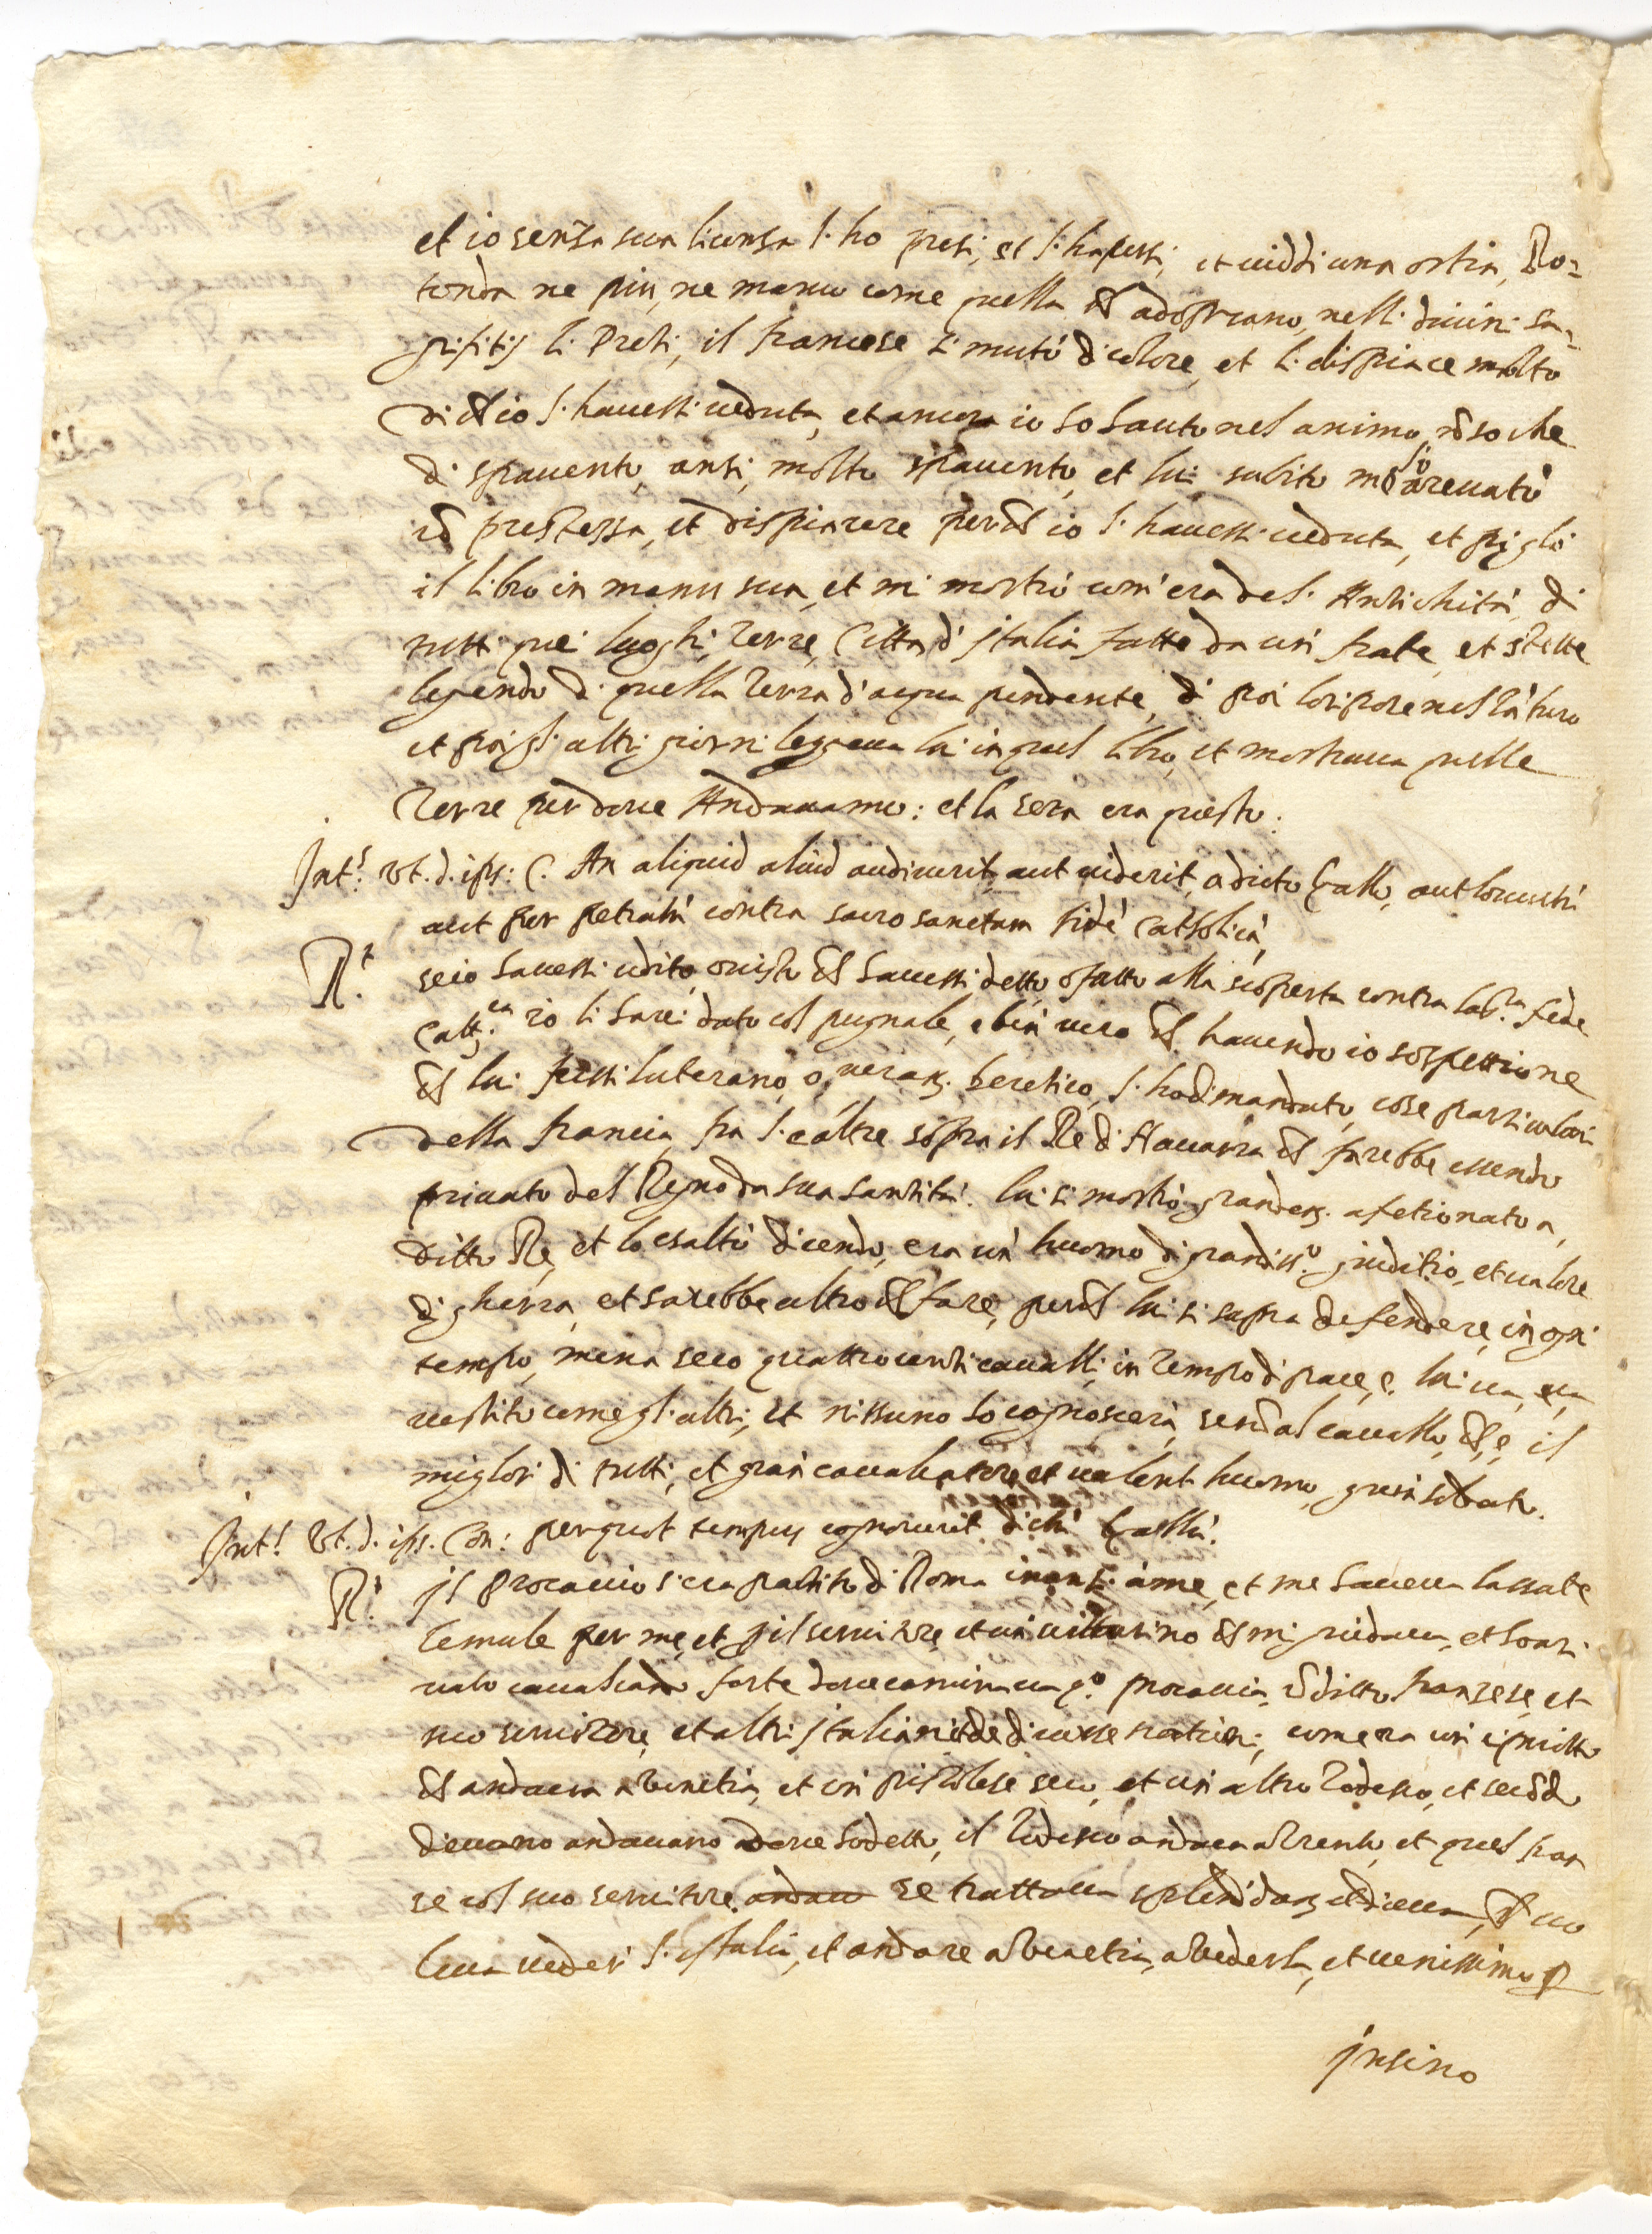 et io senza sua licensa l'ho presi, et l'hapersi, et viddi una ostia, Ro=
tonda ne piu, ne manco come quella ch adoprano, nelli divini sa=
grifitij li Preti, il francese si mutò di colore, et li dispiace molto
di ch io l'havessi veduta, et ancora io ho hauto nel animo, nō so che
di spavento, anzi, molto spavento, et lui subito
cō prestezza, et dispiacere perch io l'havessi veduta, et piglò
il libro in manu sua, et mi mostrò com'era del Antichità, di
tutti quei luoghi, Terre, Città d'jtalia fatto da un' frate, et stette
legendo di quella Terra d'acqua pendente, di poi lo ripose nel
et poi gl'altri giorni leggeva lui in quel libro, et mostrava quelle
Terre per dove Andavamo: et la sera era questo.
Int.s vt. d. ips: C. An aliquid aliud audiverit, aut viderit, a dicto Gallo, aut locutū
aut perpetratū contra sacrosanctam fidē catholicā,
R.t se io havessi udito, o visto ch havessi detto o fatto alla scoperta contra la fede
Catt.ca io li harei dato col pugnale, e ben vero ch havendo io sospettione
ch lui fussi luterano, o heretico, l'ho dimandato, cose particulari
della francia, fra l'altre sopra il Re di Navarra ch farebbe essendo
privato del Regno da sua santità. lui si mostrò afetionato a
ditto Re, et lo esaltò dicendo, era un' huomo di grandiss.o juditio, et valore
di gherra, et sarebbe altro ch fare, perch lui si sapra defendere, in ogni
tempo, mena seco quattrocenti cavalli, in tempo di pace, e lui va
vestito come gl'altri, et nissuno lo cognoscerà, se nō al cavallo, ch è il
miglor di tutti, et gran cavalcatore, et valent huomo, gran soldato.
Int.s Vt. d. ips. Con: per quot tempus cognoverit dictū Gallū.
R.t jl Procaccio s'era partito di Roma inanzi a me, et me haveva lassate
le mule per me, et jil servitore, et un vitturino ch mi guidava, et lo arri
vato cavalcando forte dove caminava q.o procaccio, cō ditto franzese, et
suo servitore, et altri jtaliani di diverse nationi, come era un
ch andava a Venetia, et un pistolese seco, et un altro Todesco, et secōdo
dicevano andavano dove ho detto, il Todesco andava a Trento, et quel fran
se col suo servitore andav se trattava et diceva, ch vo
leva veder l'jtalia, et andare a Venetia, a vederla, et venissimo
jnsino